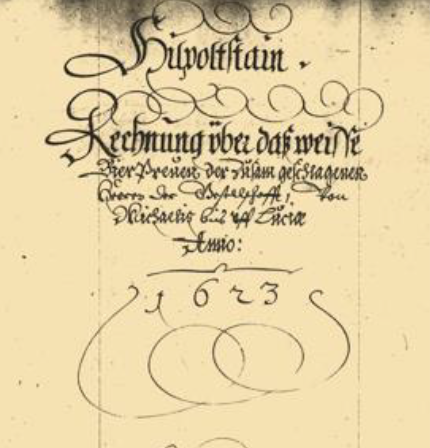 Hilpoltstain.
Rechnung über daß weisse
Bier Preuen der zusam geschlagenen
der Gesellschafft, von
Michaelis bis uff Luciæ
Anno:
1623